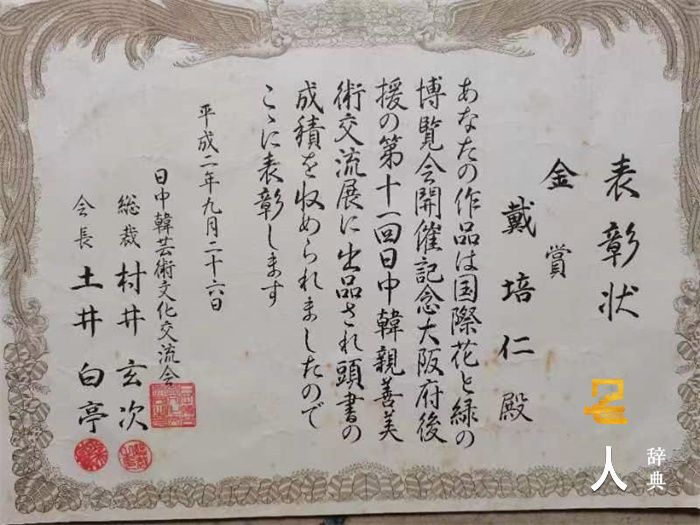 表彰状
金賞
戴培仁殿
あなたの作品は国際花と緑の
博覧会開催記念大阪府後
援の第十一回日中韓親善美
術交流展に出品され頭書の
成積を収められましたので
こゝに表彰します
平成二年九月二十六日
日中韓芸術文化交流会
総裁 村井玄次
会長 土井白亭
名人
辞典